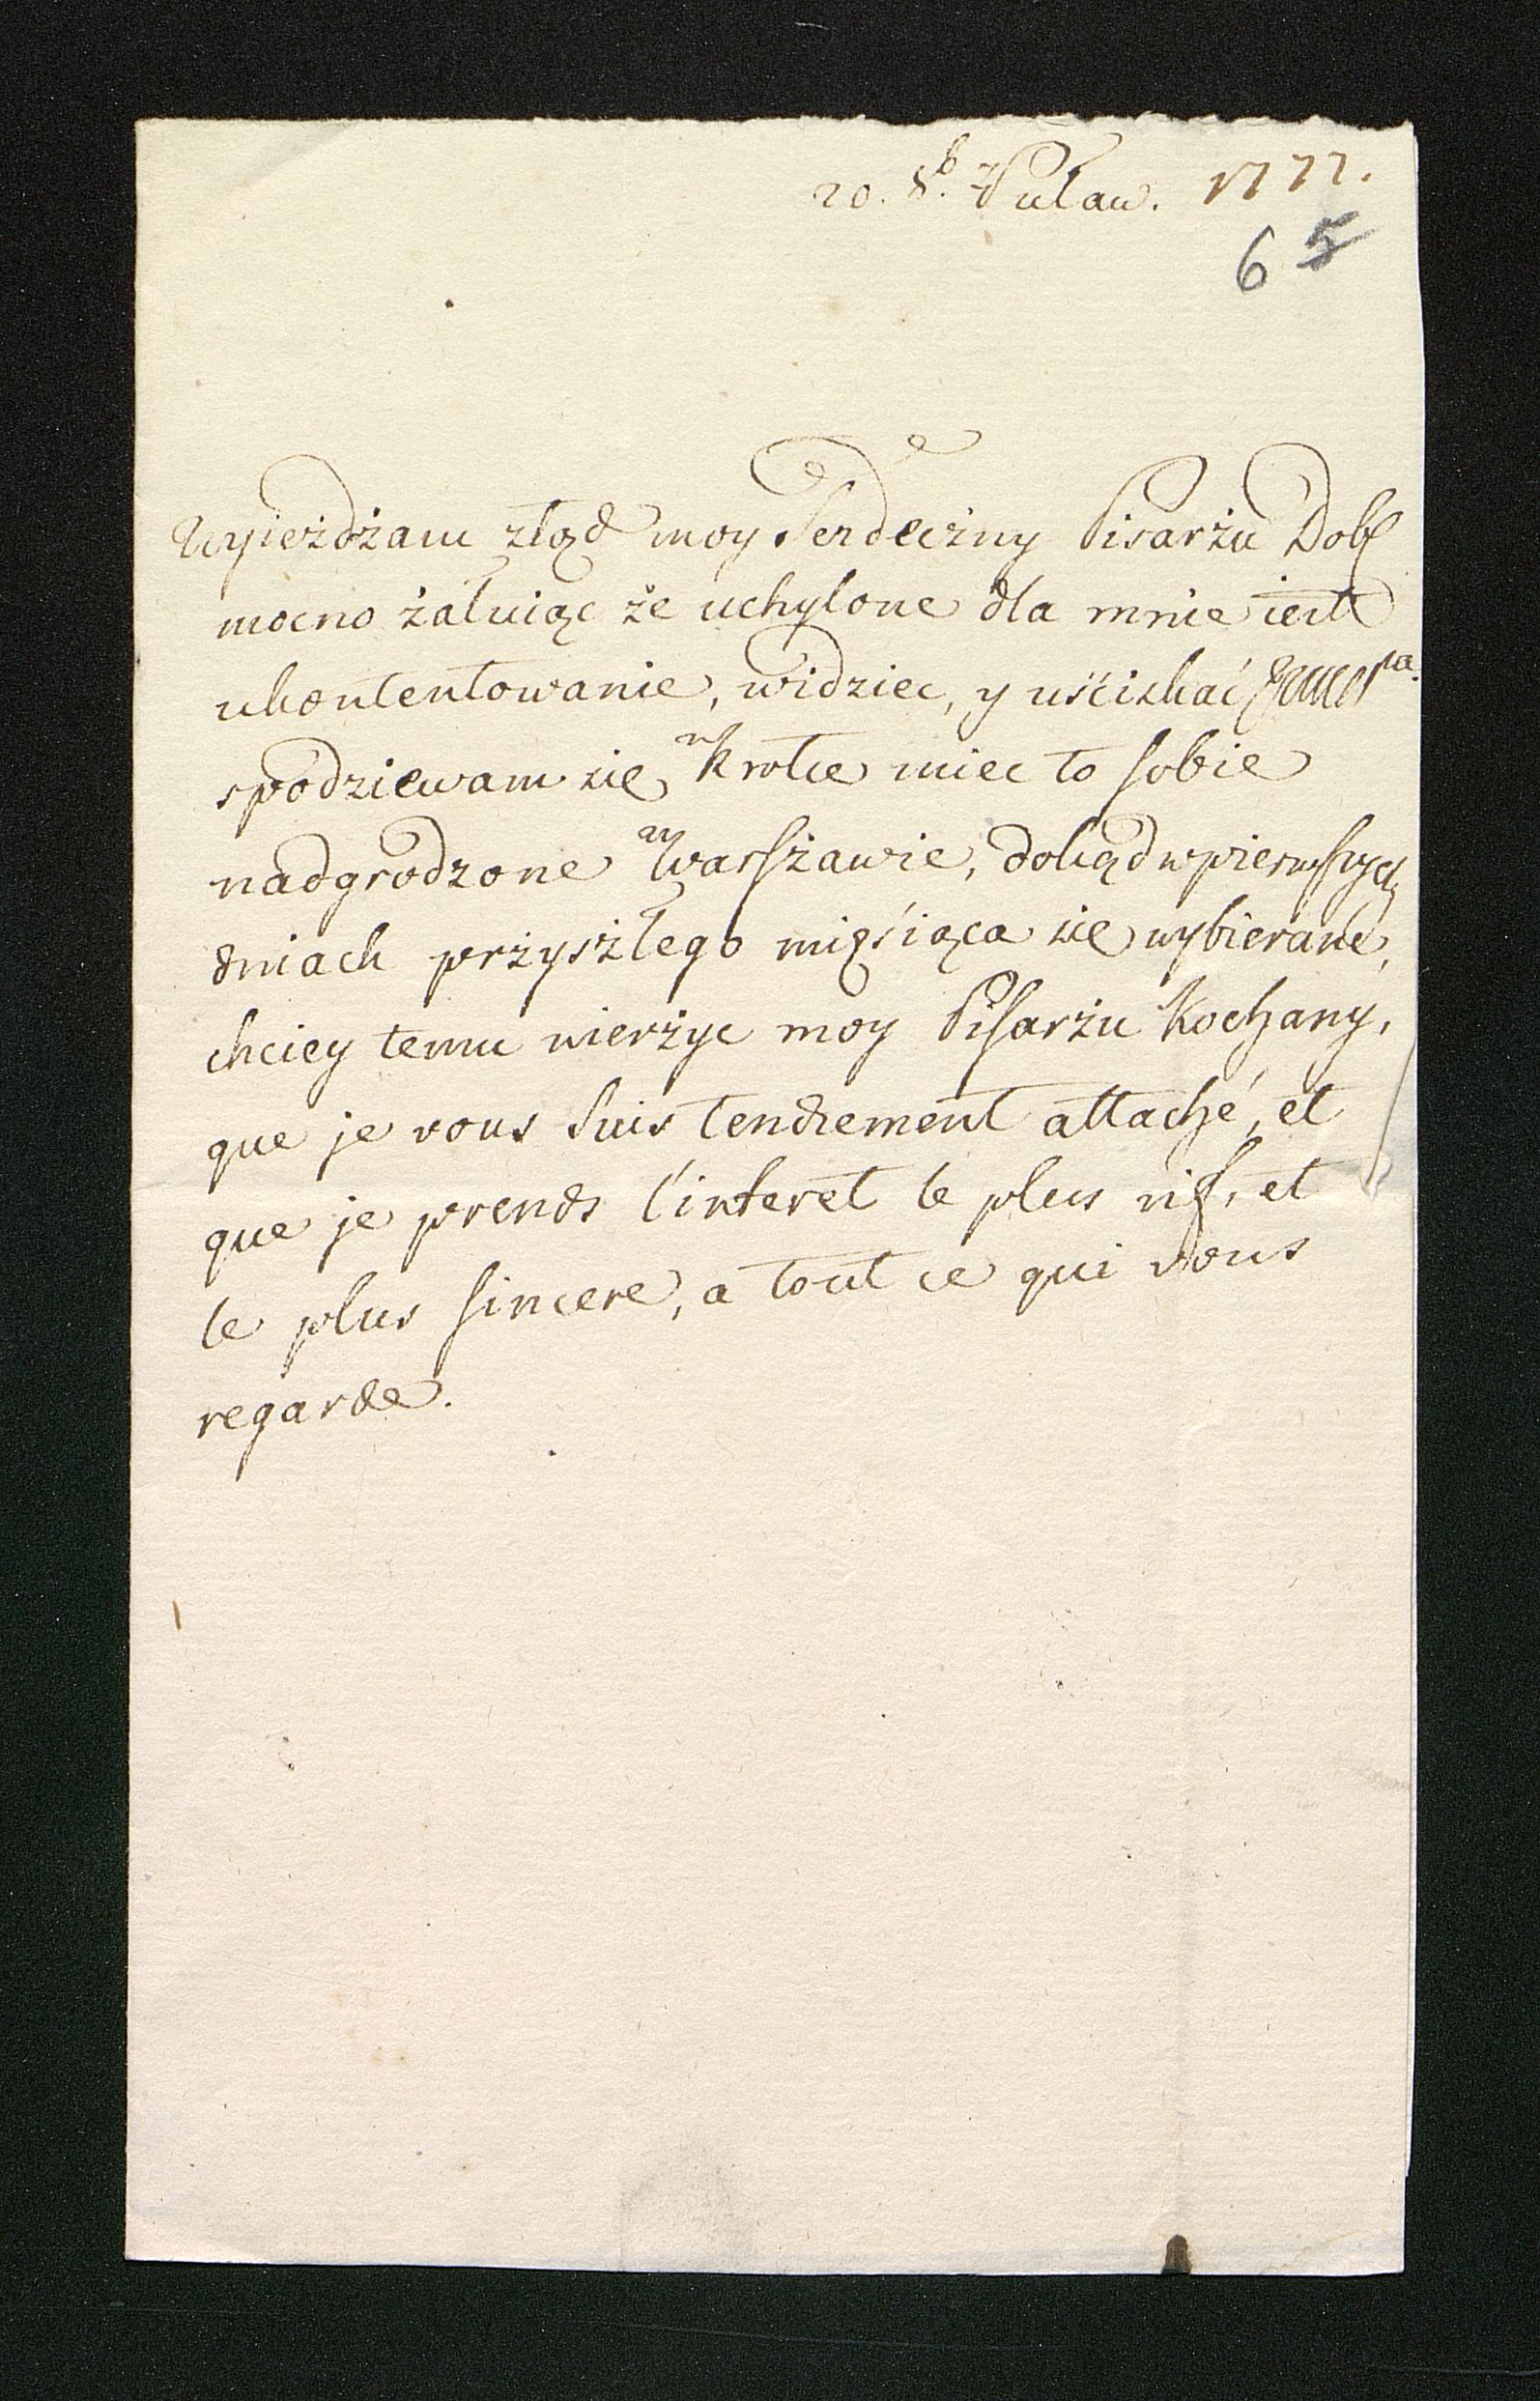 20. 8b. z Puław. 1777.
6 5
Wyieżdżam ztąd moy Serdeczny Pisarżu Dobſ
mocno żałuiąc że uchylone dla mnie iest
ukontentowanie, widziec, y uściskać
spodziewam się w krotce miec to sobie
nadgrodzone w Warſzawie, dokąd w pierwſzych
dniach przyszłego mięsiąca się wybieram,
chciey temu wierżyc moy Piſarżu Kochany,
que je vous suis tendrement attaché, et
que je prends l'interet le plus vif, et
le plus sincere, a tout ce qui vous
regarde.